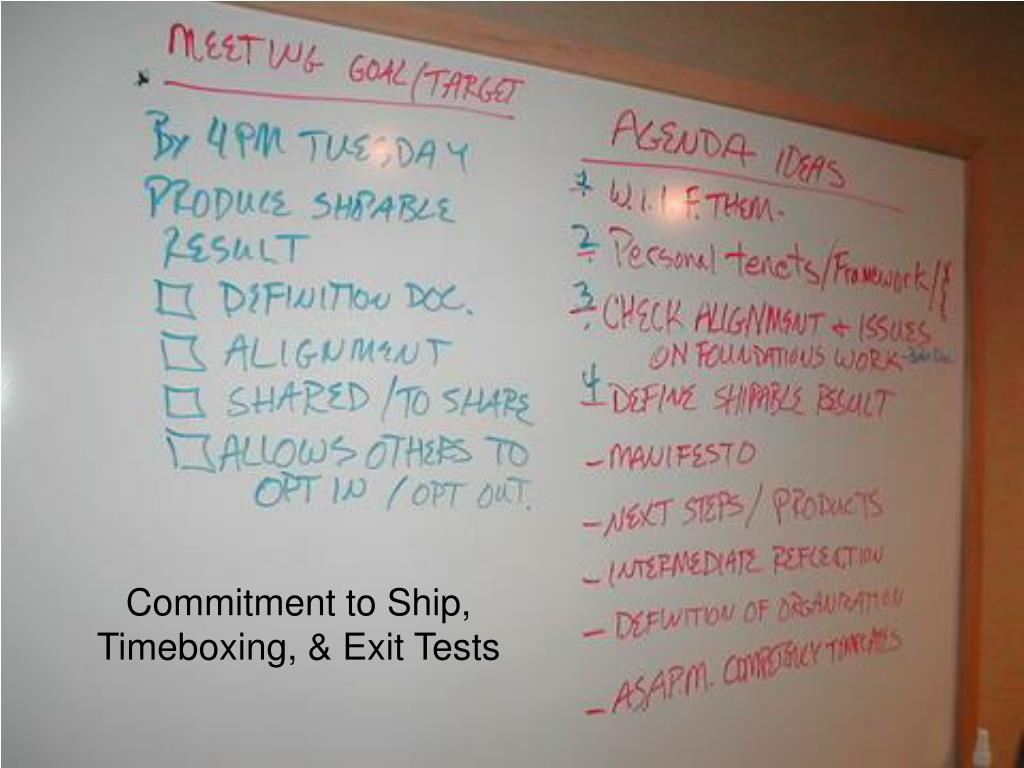 MEETING GOAL/TARGET
By 4PM TUESDAY
PRODUCE SHPABLE
RESULT
DEFINITION DOC.
ALIGNMENT
SHARED / TO SHARE
ALLOWS OTHERS TO
OPT IN / OPT OUT.
AGENDA IDEAS
1. W.I.I.F. THEM.
2. Personal tenets/Framework/
3. CHECK ALIGNMENT + ISSUES
ON FOUNDATIONS WORK
4 - DEFINE SHIPABLE RESULT
- MANIFESTO
- NEXT STEPS / PRODUCTS
- INTERMEDIATE REFLECTION
- DEFINITION OF ORGANIZATION
- ASAPM. COMPETENCY TEMPLATES
Commitment to Ship,
Timeboxing, & Exit Tests